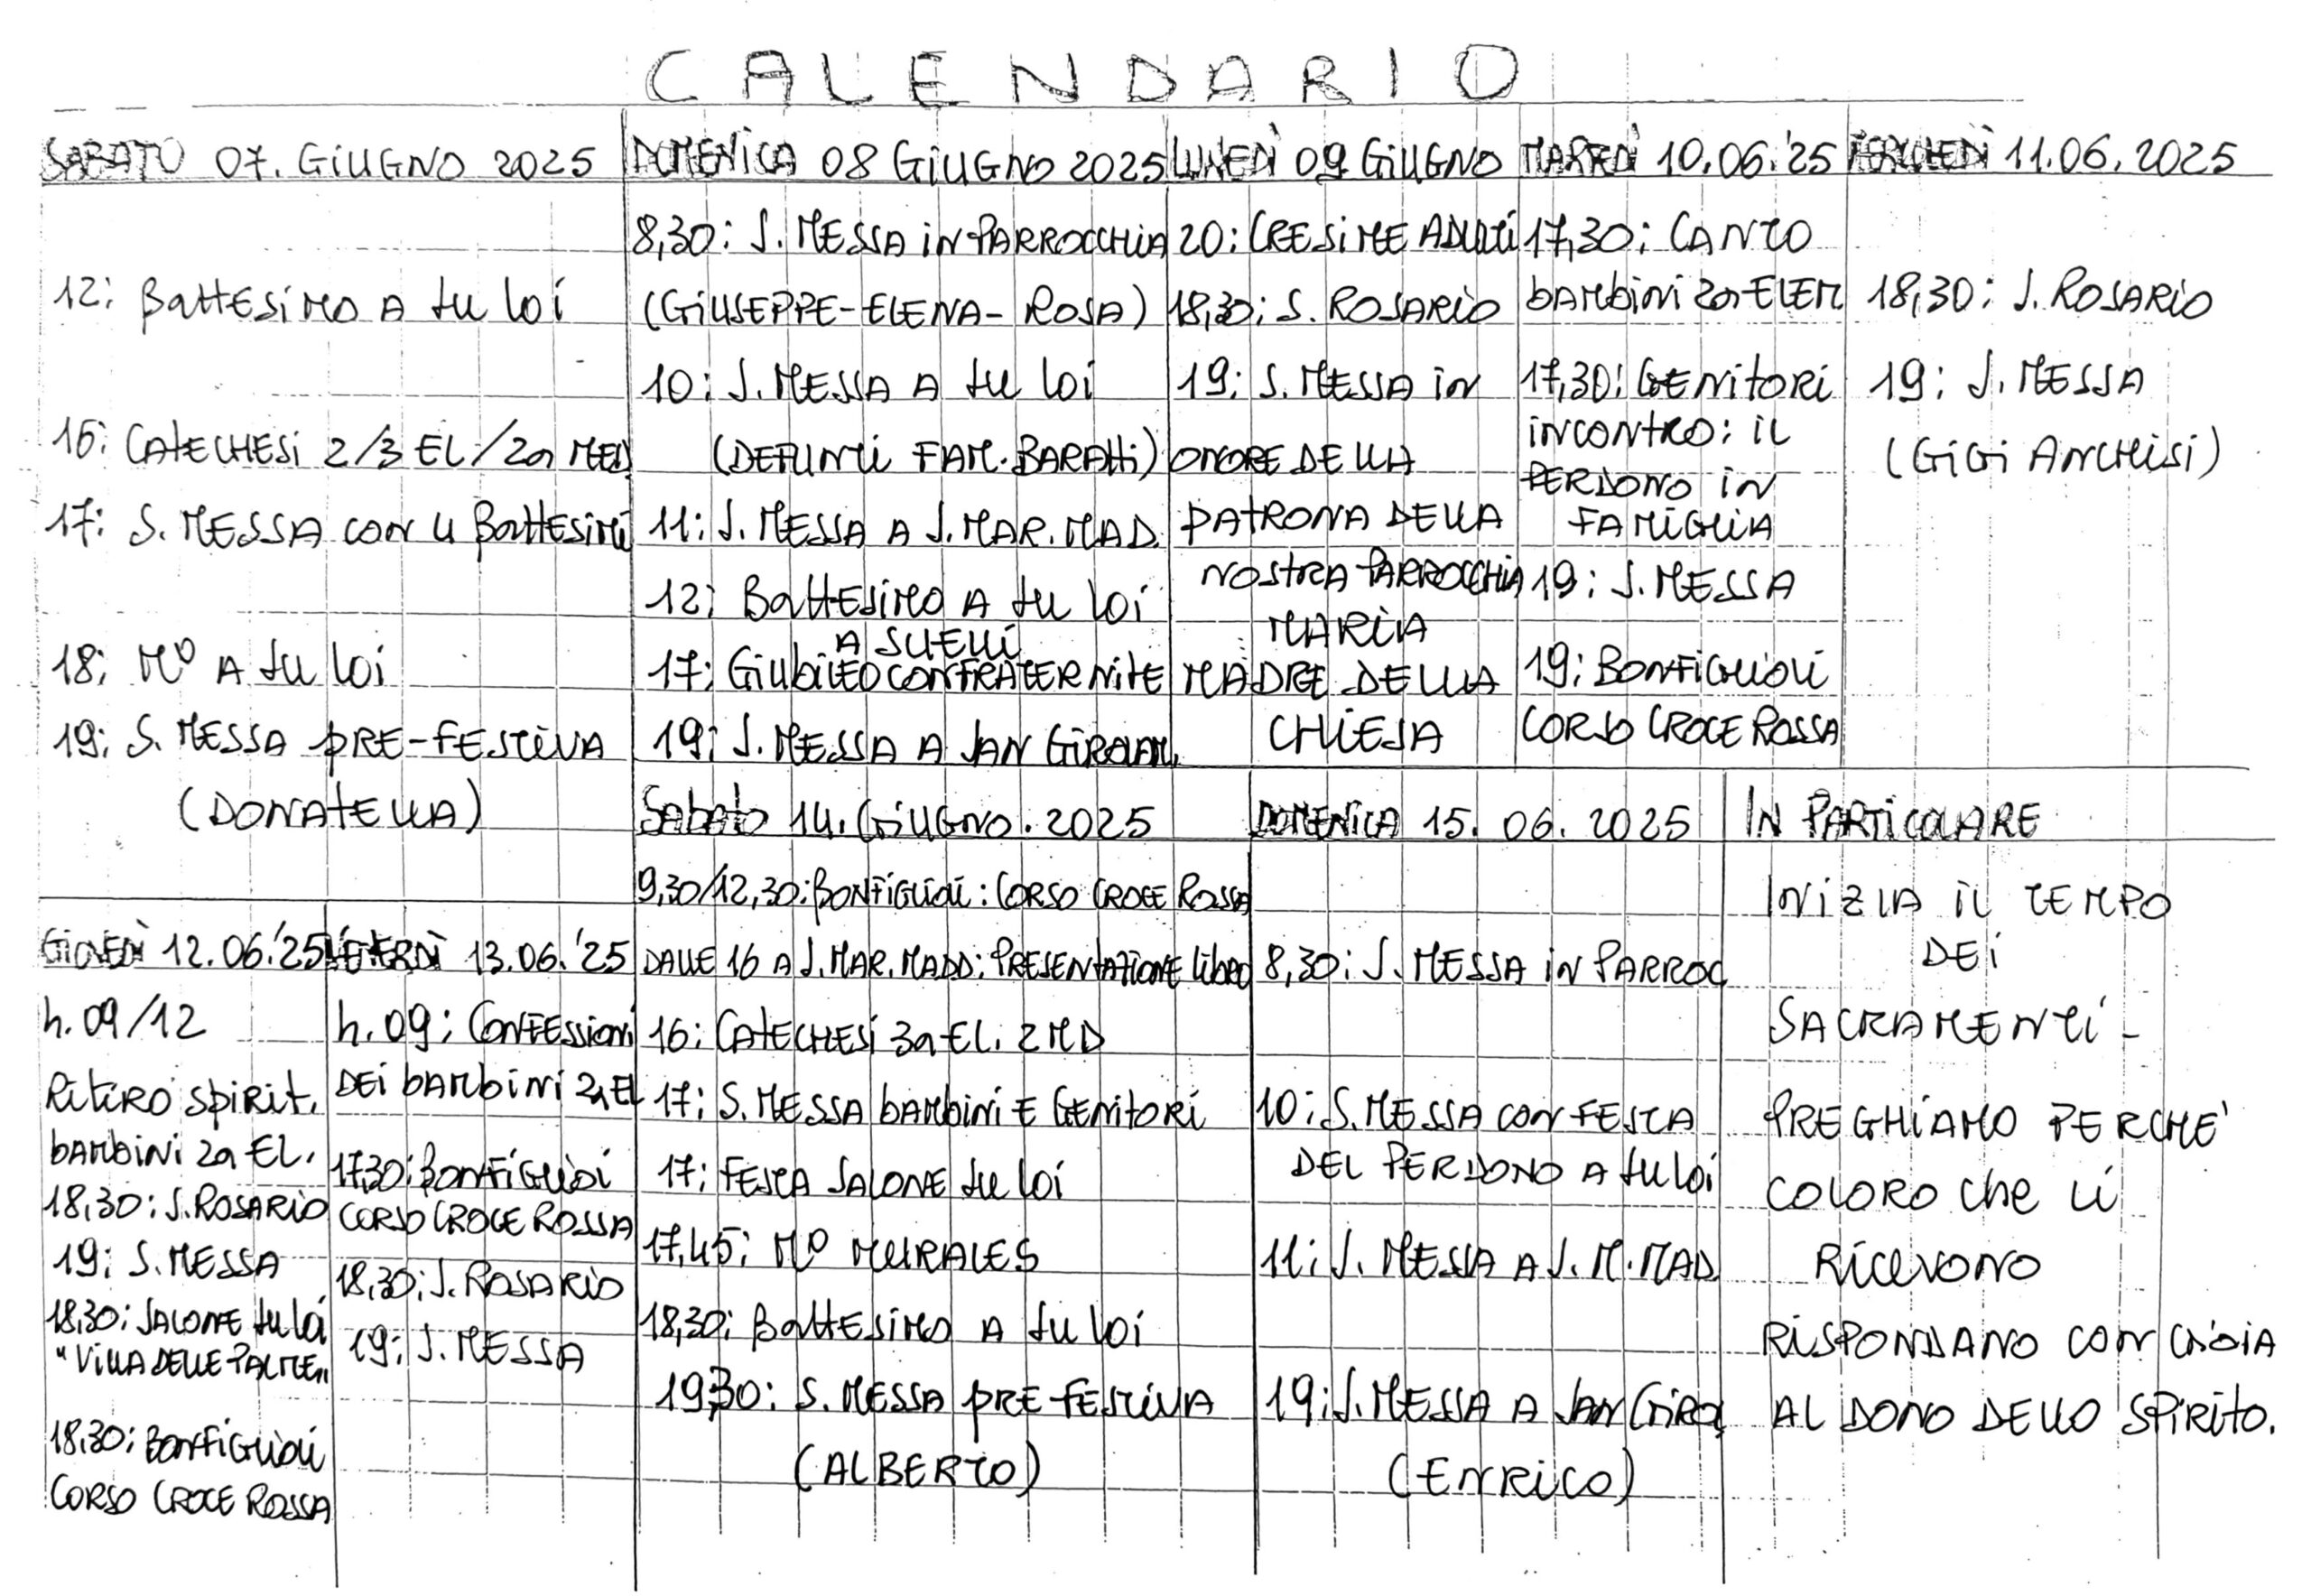 CALENDARIO
SABATO 07. GIUGNO 2025
12: BATTESIMO A SU LOI
16: CATECHESI 2/3 EL/2a MED
17: S. MESSA CON 4 BATTESIMI
18: Mº A SU LOI
19: S. MESSA PRE-FESTIVA
(DONATELLA)
DOMENICA 08 GIUGNO 2025
8,30: S. MESSA IN PARROCCHIA
(GIUSEPPE-ELENA-ROSA)
10: S. MESSA A SU LOI
(DEFUNTI FAM. BARATTI)
11: S. MESSA A S. MAR. MAD.
12: BATTESIMO A SU LOI
A SUELLI
17: GIUBILEO CONFRATERNITE
19: S. MESSA A SAN GIROLAM.
LUNEDÌ 09 GIUGNO
20: CRESIME ADULTI
18,30: S. ROSARIO
19: S. MESSA IN
ONORE DELLA
PATRONA DELLA
NOSTRA PARROCCHIA
MARIA
MADRE DELLA
CHIESA
MARTEDÌ 10.06.'25
17,30: CANTO
BAMBINI 2a ELEM
17,30: GENITORI
INCONTRO: IL
PERDONO IN
FAMIGLIA
19: S. MESSA
19: BONFIGLIOLI
CORSO CROCE ROSSA
MERCOLEDÌ 11.06.2025
18,30: S. ROSARIO
19: S. MESSA
(GIGI ANCHISI)
GIOVEDÌ 12.06.'25
h. 09/12
RITIRO SPIRIT.
BAMBINI 2a EL.
18,30: S. ROSARIO
19: S. MESSA
18,30: SALONE SU LOI
"VILLA DELLE PALME"
18,30: BONFIGLIOLI
CORSO CROCE ROSSA
VENERDÌ 13.06.'25
h. 09: CONFESSIONI
DEI BAMBINI 2a EL
17,30: BONFIGLIOLI
CORSO CROCE ROSSA
18,30: S. ROSARIO
19: S. MESSA
SABATO 14. GIUGNO. 2025
9,30/12,30: BONFIGLIOLI: CORSO CROCE ROSSA
DALLE 16 A S. MAR. MADD: PRESENTAZIONE LIBRO
16: CATECHESI 3a EL. 2 MD
17: S. MESSA BAMBINI E GENITORI
17: FESTA SALONE SU LOI
17,45: Mº MURALES
18,30: BATTESIMO A SU LOI
19,30: S. MESSA PRE-FESTIVA
(ALBERTO)
DOMENICA 15. 06. 2025
8,30: S. MESSA IN PARROC
10: S. MESSA CON FESTA
DEL PERDONO A SU LOI
11: S. MESSA A S. M. MAD
19: S. MESSA A SAN GIRO
(ENRICO)
IN PARTICOLARE
INIZIA IL TEMPO
DEI
SACRAMENTI -
PREGHIAMO PERCHE'
COLORO CHE LI
RICEVONO
RISPONDANO CON GIOIA
AL DONO DELLO SPIRITO.